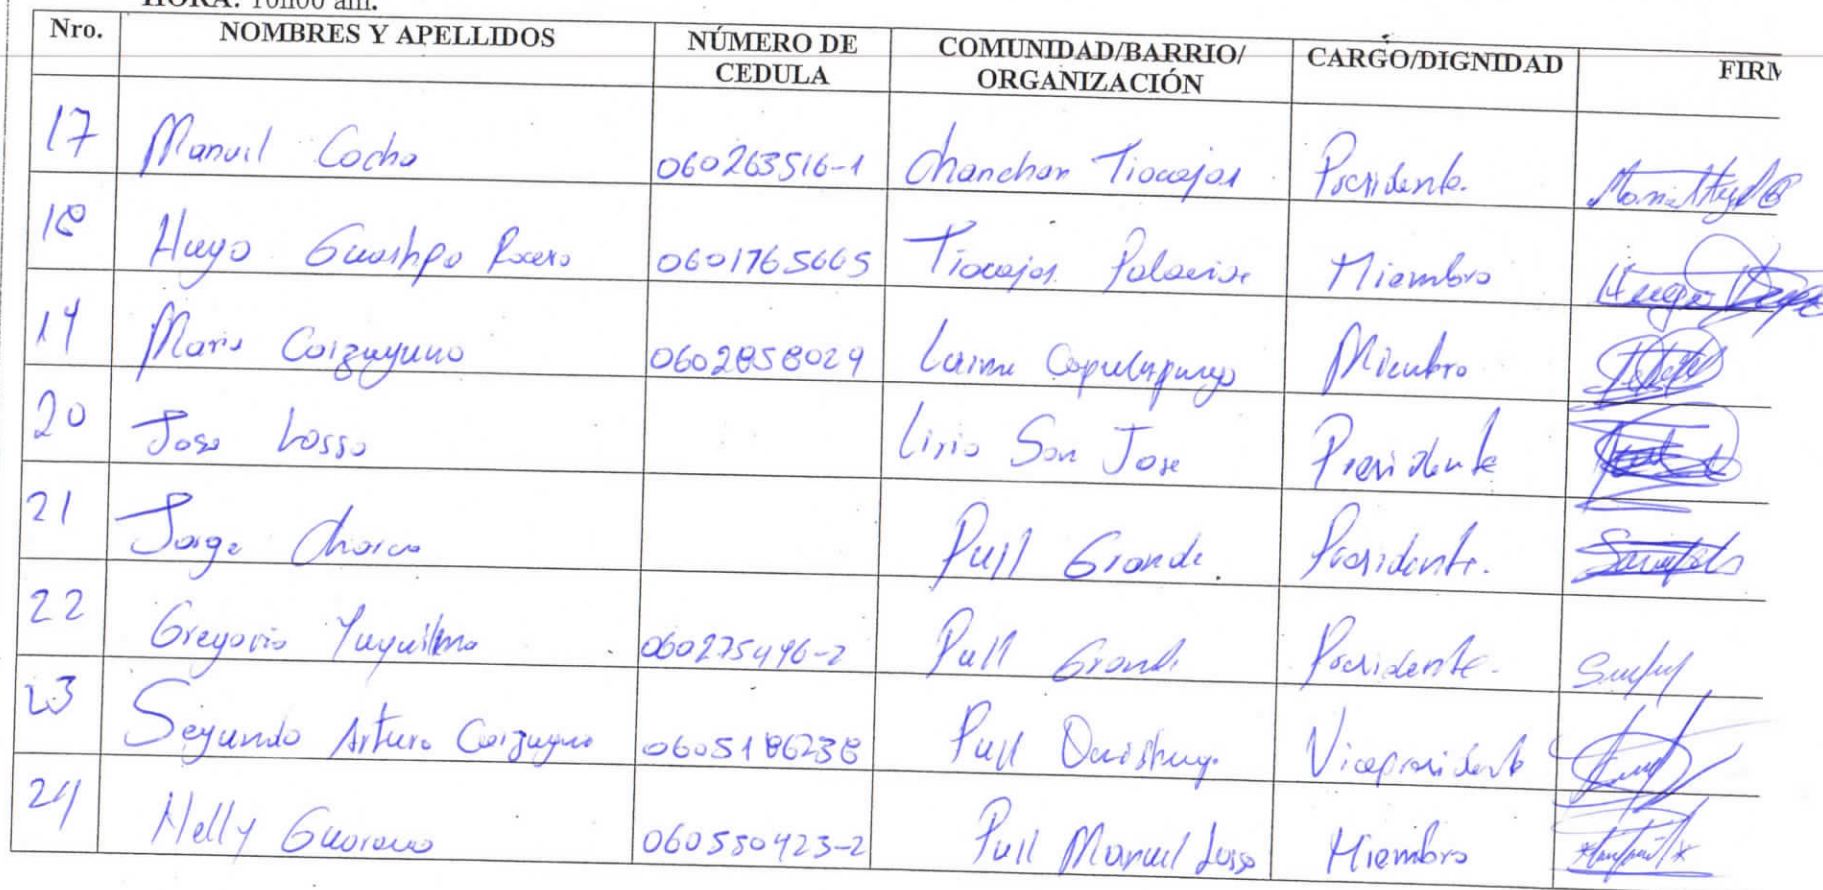 HORA: 10h00 am.
Nro. NOMBRES Y APELLIDOS NÚMERO DE CEDULA COMUNIDAD/BARRIO/ORGANIZACIÓN CARGO/DIGNIDAD FIRM
17 Manuel Cocha 060263516-1 Chanchan Tiocajas Presidente.
18 Hugo Guashpa Rocero 0601765665 Tiocajas Palacios Miembro
19 Mario Caizaguano 0602858029 Laime Capulispungo Miembro
20 Jose Lasso Lirio San Jose Presidente
21 Jorge Pull Grande. Presidente.
22 Gregorio Yuquilema 060275496-2 Pull Grande Presidente.
23 Segundo Arturo Caizaguano 0605186238 Pull Quishuar Vicepresidente
24 Nelly Guaraca 060550423-2 Pull Manuel Lasso Miembro